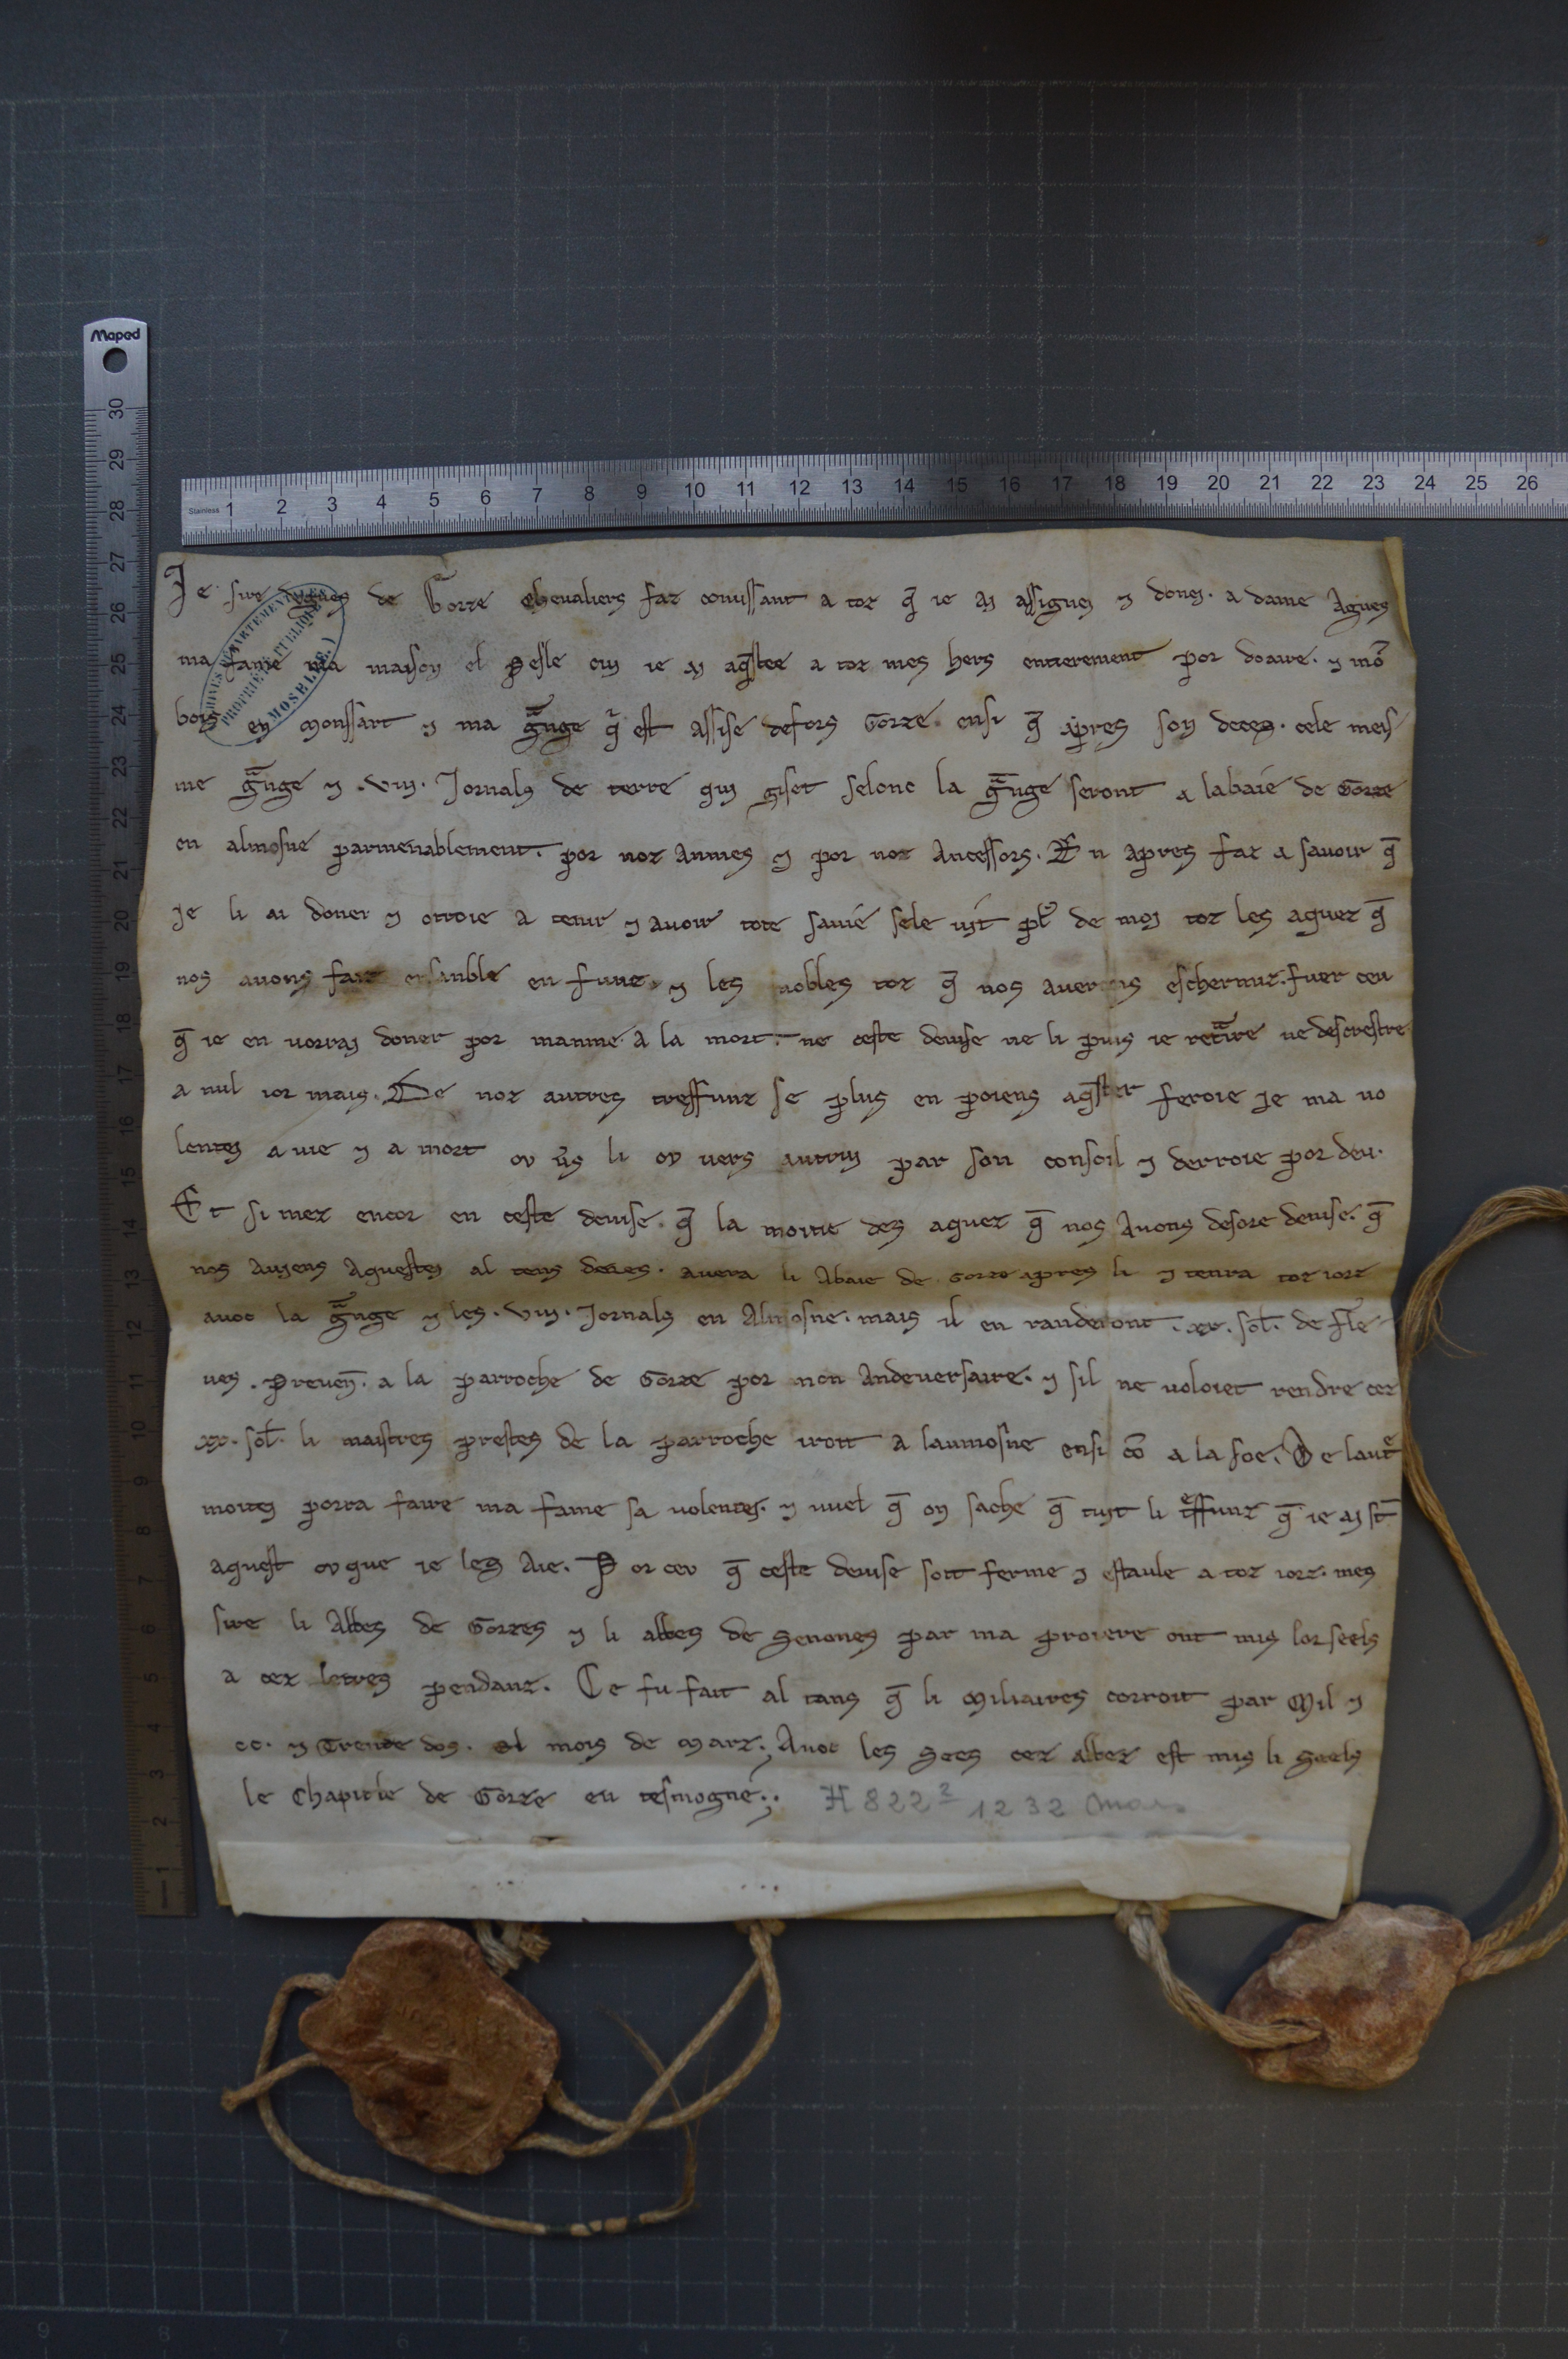 Maped
Je sire de Gorze chevaliers faz conuissant a toz q̄ ie aj assignej ⁊ donej. a dame Agnes
ma fame ma maison el Pesle cuj ie aj aq̄stee a toz mes hers entierement por doaire. ⁊ mō
bois en Monssart ⁊ ma gͣnge qͥ est assise defors Gorze. ensi q̄ apres son deces. cele meis
me gͣnge ⁊ .viij. Jornals de terre quj giset selonc la gͣnge seront a labaie de Gorze
en almosne parmenablement. por noz Anmes ⁊ por noz Ancessors. En apres faz a savoir q̄
je li ai doner ⁊ otroie a tenir ⁊ avoir tote savie sele vit pl᷒ de moj toz les aquez q̄
nos avons faiz ensanble en funz. ⁊ les nobles toz q̄ nos averons eschermiz. fuer ceu
q̄ ie en vorraj doner por manme. A la mort. ne ceste devise ne li puis ie retͣire ne descrestre
a nul ior mais. De noz autres treffunz se plus en poiens aq̄ster feroie je ma vo
lentej a vie ⁊ a mort ov v̄s li ov vers autruj par son consoil ⁊ derroie por deu.
Et si mez encor en ceste devise. q̄ la moitie des aquez q̄ nos Avons desore devise. q̄
nos Aujens Aquestej al tens deues. avera li Abaie de Gorze apres li ⁊ tenra toz iorz
avoc la gͣnge ⁊ les .viij. Jornals en Almosne. mais il en randeront .xx. sol̄. de fle
ves. Preven̄. a la parroche de Gorze por mon Andeversaire. ⁊ sil ne voloiet rendre cez
xx. sol̄. li maistres prestes de la parroche iroit A laumosne ensi cō a la soe. De lautͤ
moitej porra faire ma fame sa volentej. ⁊ vuel q̄ on sache q̄ tujt li tͤffunz q̄ ie aj st̄
aquest ov que ie les Aie. Por cev q̄ ceste devise soit ferme ⁊ estaule a toz iorz. mes
sire li Abbes de Gorzes ⁊ li abbes de Senones par ma proiere ont mis lor seels
a cez letres pendanz. Ce fu fait al tans q̄ li Miliaires corroit par Mil ⁊
cc. ⁊ Trente dos. el mois de Marz. Avoc les Sees cez abbez est mis li Seels
le Chapitle de Gorze en tesmogne.
H 822² 1232 Mars